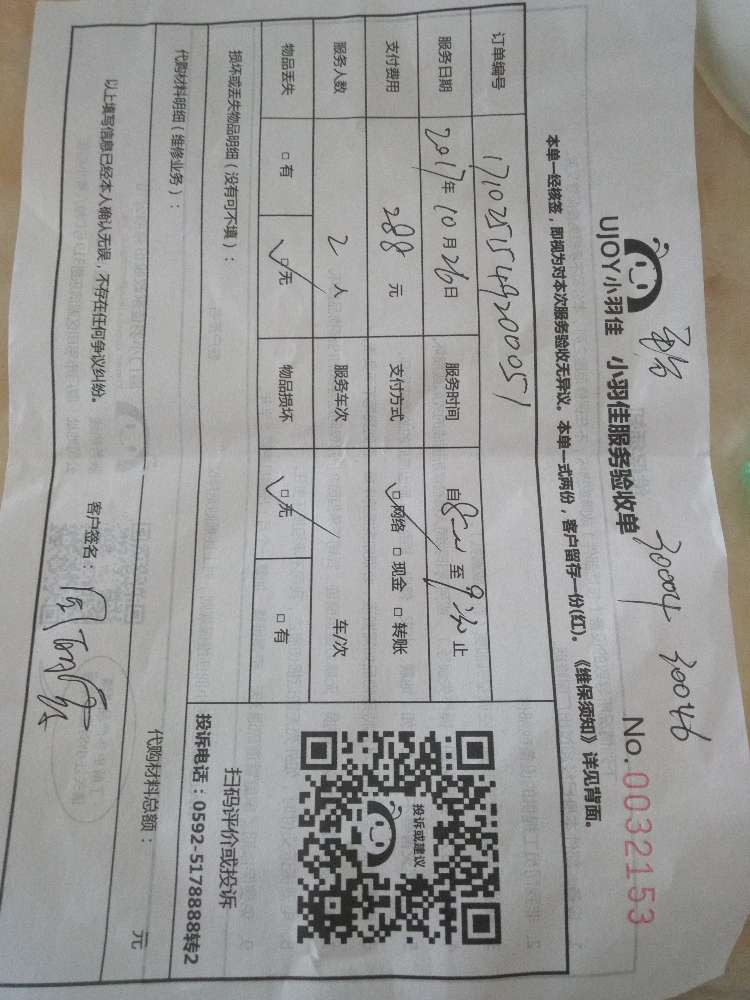 30004 30046
UJOY小羽佳 小羽佳服务验收单 No.0032153
本单一经核签，即视为对本次服务验收无异议。本单一式两份，客户留存一份(红)。《维保须知》详见背面。
订单编号 171025154920051
服务日期 2017年10月26日 服务时间 自 至 止
支付费用 288 元 支付方式 □网络 □现金 □转账
服务人数 2 人 服务车次 车/次
物品丢失 □有 □无 物品损坏 □无 □有
损坏或丢失物品明细（没有可不填）：
代购材料明细（维修业务）：
代购材料总额： 元
以上填写信息已经本人确认无误，不存在任何争议纠纷。 客户签名：
投诉或建议
扫码评价或投诉
投诉电话：0592-5178888转2